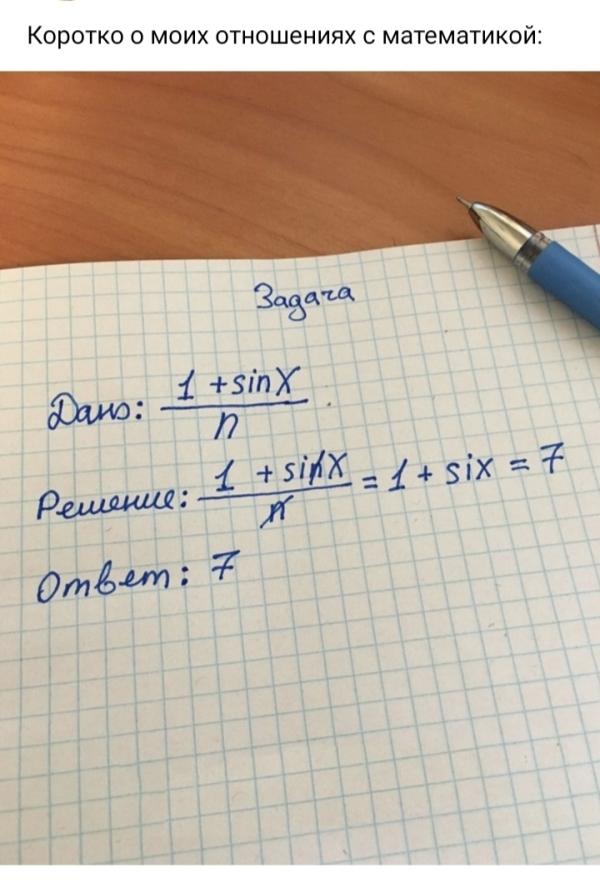 Коротко о моих отношениях с математикой:
Задача
Дано: (1 + sinx)/n
Решение: (1 + sinx)/n = 1 + six = 7
Ответ: 7